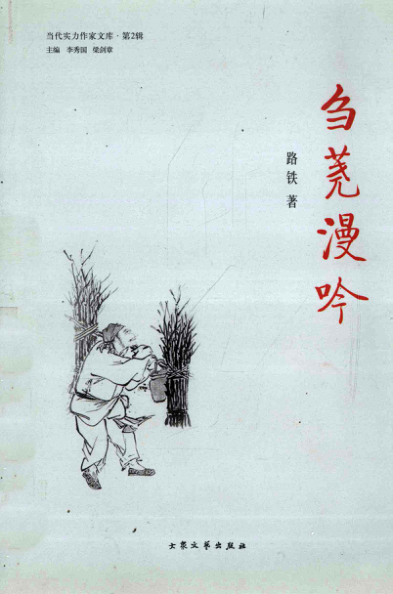 当代实力作家文库·第2辑
主编 李秀国 梁剑章
刍荛漫吟
路铁 著
大众文艺出版社